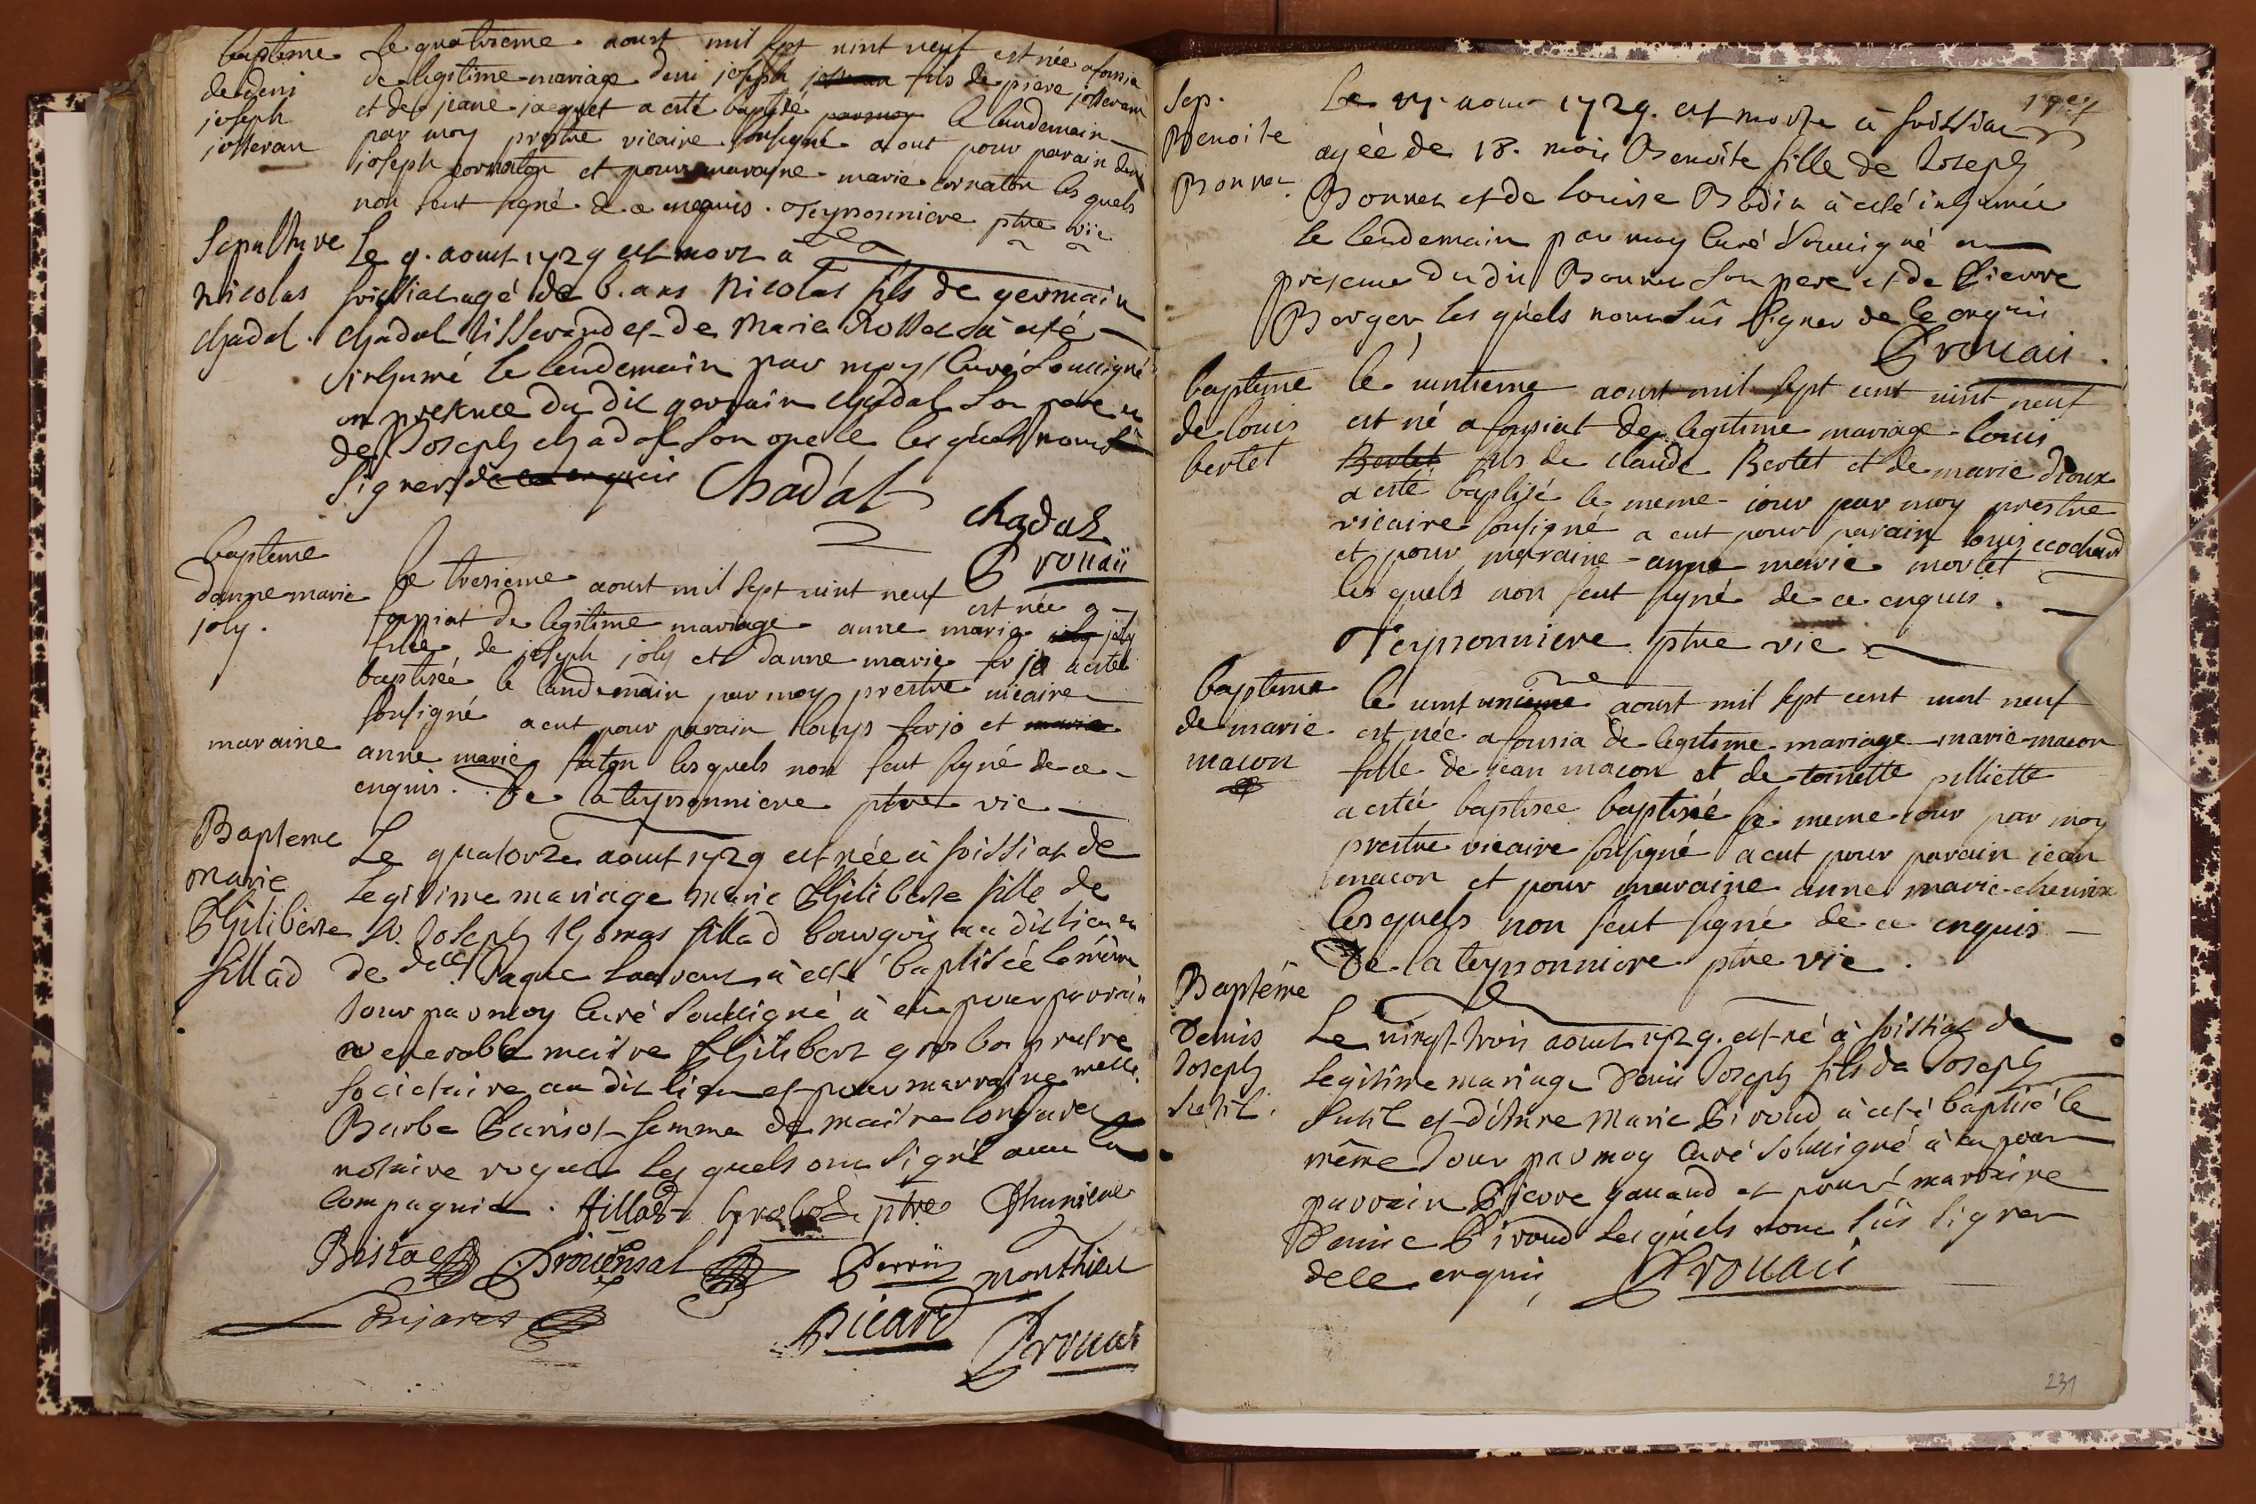 bapteme
de deni
joseph
josseran
le quatrieme aoust mil sept vint neuf est née a foisia
de legitime mariage deni joseph fils de piere josseran
et de jeane jaquet a esté baptisé le landemain
par moy prestre vicaire sousigné a eut pour parain deni
joseph cornaton et pour maraine marie cornaton les quels
non seut signé de ce enquis. Teyssonniere ptre vic
Sepulture
Nicolas
chadal.
Le 9. aout 1729 est mort à
foissiat agé de 6. ans Nicolas fils de germain
chadal tisserand et de Marie à esté
inhumé le lendemain par moy Curé soussigné
en presence du dit germain chadal son pere et
de Joseph chadal son oncle les quels
signer de ce enquis
Chadal
chadal
Provaii
bapteme
danne marie
joly.
le tresieme aoust mil sept vint neuf est née a
foissiat de legitime mariage anne marie joly
fille de joseph joly et danne marie ferjo a estée
baptisée le landemain par moy prestre vicaire
sousigné a eut pour parain louys ferjo et marie
maraine
anne marie les quels non seut signé de ce
enquis. De la teyssonniere ptre vic
Bapteme
Marie
Philiberte
fillad
Le quatorze aout 1729 est née à foissiat de
Legitime mariage Marie Philiberte fille de
Sr. Joseph thomas fillad bourgois au dit lieu et
de delle Laurent à esté baptisée le même
Jour par moy Curé soussigné à eu pour parrain
venerable maitre Philibert grosbo prestre
societaire au dit lieu et pour marraine melle.
Barbe femme de maitre
notaire royal les quels ont signé avec la
compagnie. fillad ptre
Provensal Perrin monthieu
Picard Provaii
Sep.
Benoite
Bonnet
Le aout 1729. est morte à foissiat
agée de 18. mois Benoite fille de Joseph
Bonnet et de Louise Bodin à esté inhumée
le lendemain par moy Curé soussigné en
presence du dit Bonnet son pere et de Pierre
Borger les quels nont sû signer de ce enquis
Provaii.
bapteme
de louis
bertet
le vintieme aoust mil sept cent vint neuf
est né a foissiat de legitime mariage louis
Bertet fils de claude Bertet et de marie droux
a esté baptisé le meme jour par moy prestre
vicaire sousigné a eut pour parain louis ecochard
et pour maraine anne marie morlet
les quels non seut signé de ce enquis.
Teyssonniere ptre vic
bapteme
de marie
macon
le vint unieme aoust mil sept cent vint neuf
est née a foissia de legitime mariage marie macon
fille de jean macon et de toinette pilliette
a estée baptisee baptisé le meme jour par moy
prestre vicaire sousigné a eut pour parain jean
macon et pour maraine anne marie
les quels non seut signé de ce enquis
De la teyssonniere ptre vic.
Baptême
Denis
Joseph
Sutil.
Le vingt trois aout 1729. est né à foissiat de
Legitime mariage Denis Joseph fils de Joseph
Sutil et d'Anne Marie Piroud à esté baptisé le
même Jour par moy Curé soussigné à eu pour
parrain Pierre gauaud et pour marraine
Denise Piroud Les quels nont sûs signer
de ce enquis, Provaii
231